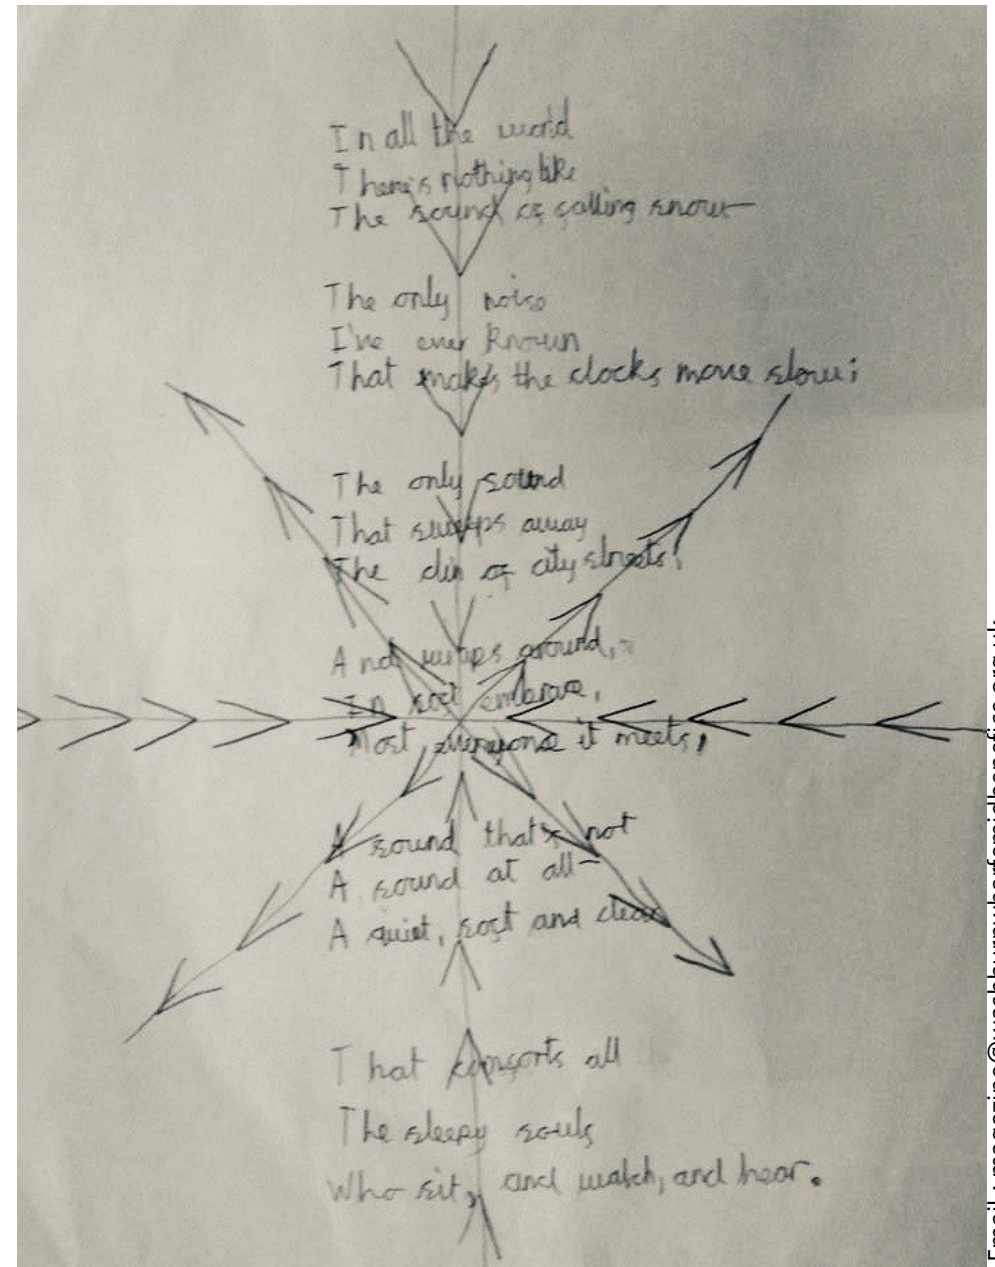 In all the world
There's nothing like
The sound of falling snow—
The only noise
I've ever known
That makes the clocks move slow;
The only sound
That sweeps away
The din of city streets,
And wraps around,
In soft embrace,
Most everyone it meets;
A sound that's not
A sound at all—
A quiet, soft and clear
That comforts all
The sleepy souls
Who sit, and watch, and hear.